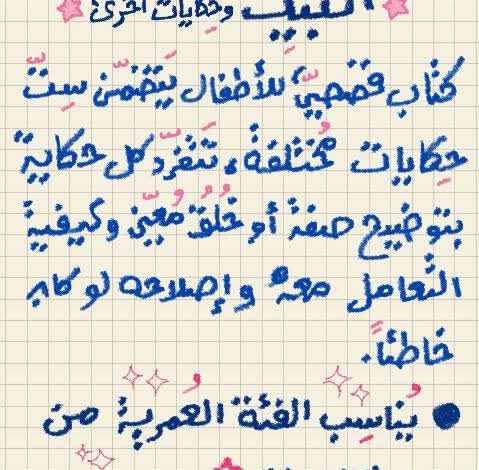 وحكايات أخرى
كتاب قصصيّ للأطفال يَتضمّن ستّ
حِكايات مُختلفة، تَتفرّد كل حكاية
بتوضيح صفة أو خُلُقٍ مُعيّن وكيفية
التّعامل معهُ وإصلاحه لو كان
خاطئاً.
يُناسِب الفئة العُمرية من